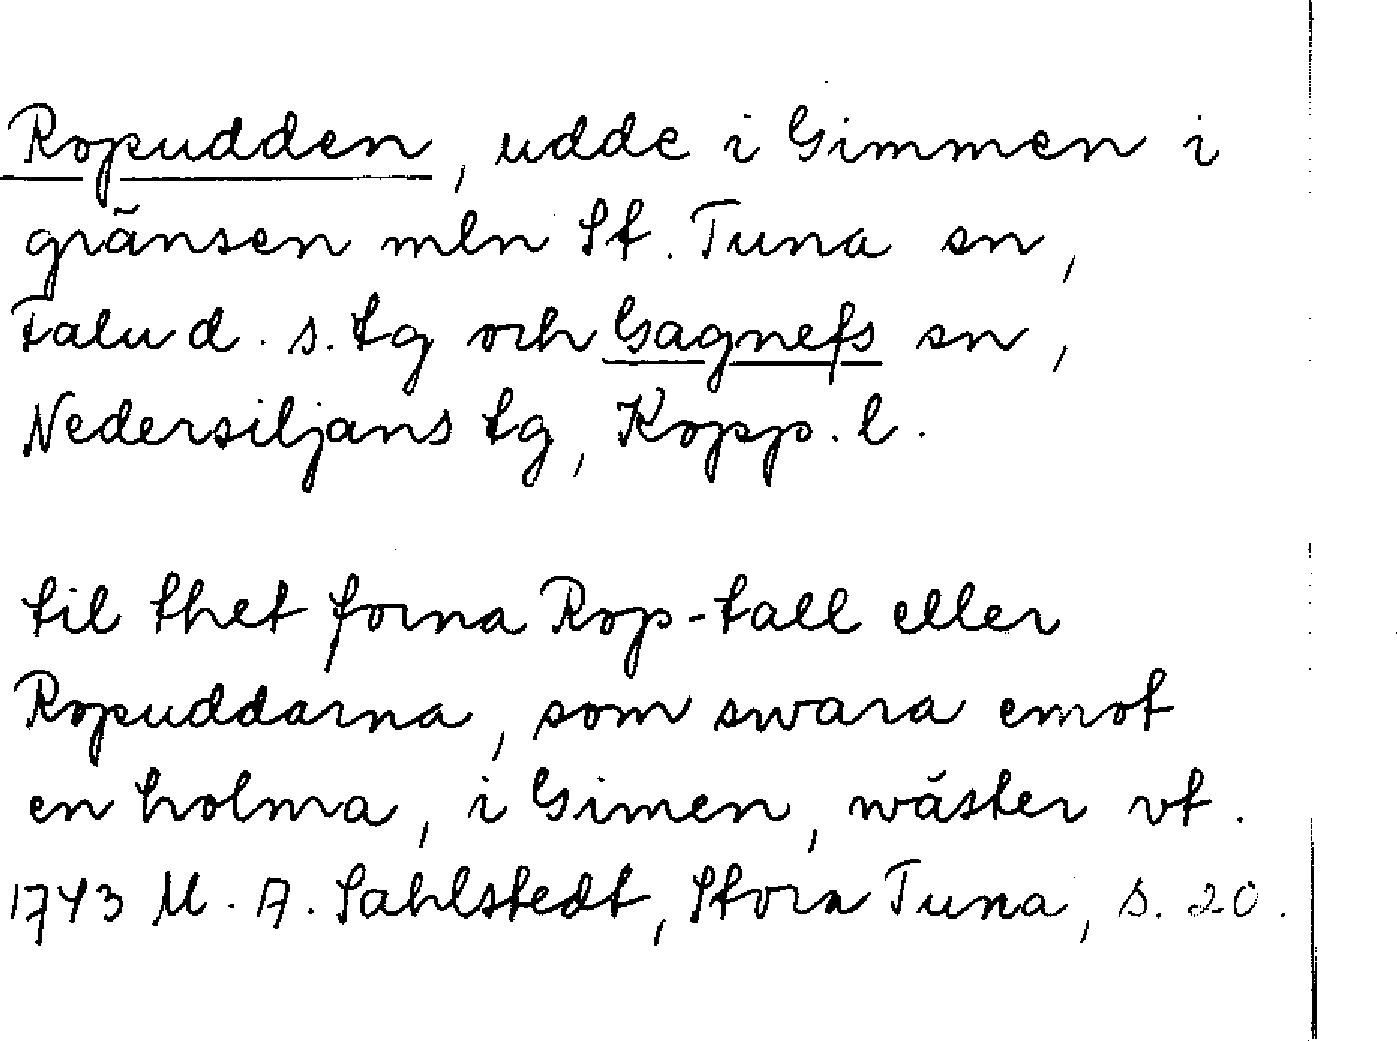 Ropudden, udde i Gimmen i
gränsen mln St. Tuna sn,
Falu d. s. tg och Gagnefs sn,
Nedersiljans tg, Kopp. l.
til thet forna Rop-tall eller
Ropuddarna, som swara emot
en holma, i Gimen, wäster vt.
1743 M. A. Sahlstedt, Stora Tuna, s. 20.